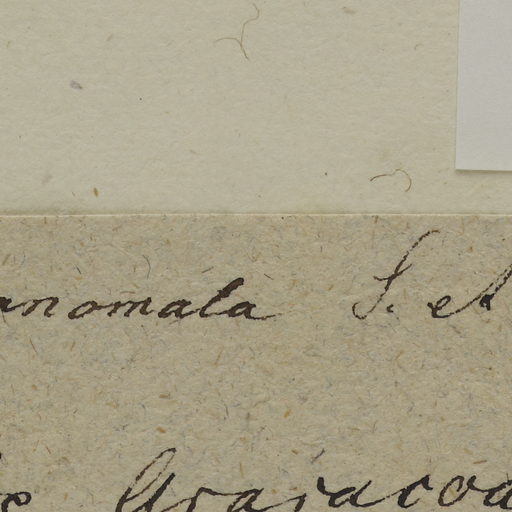 anomala S. et
Grajacoa